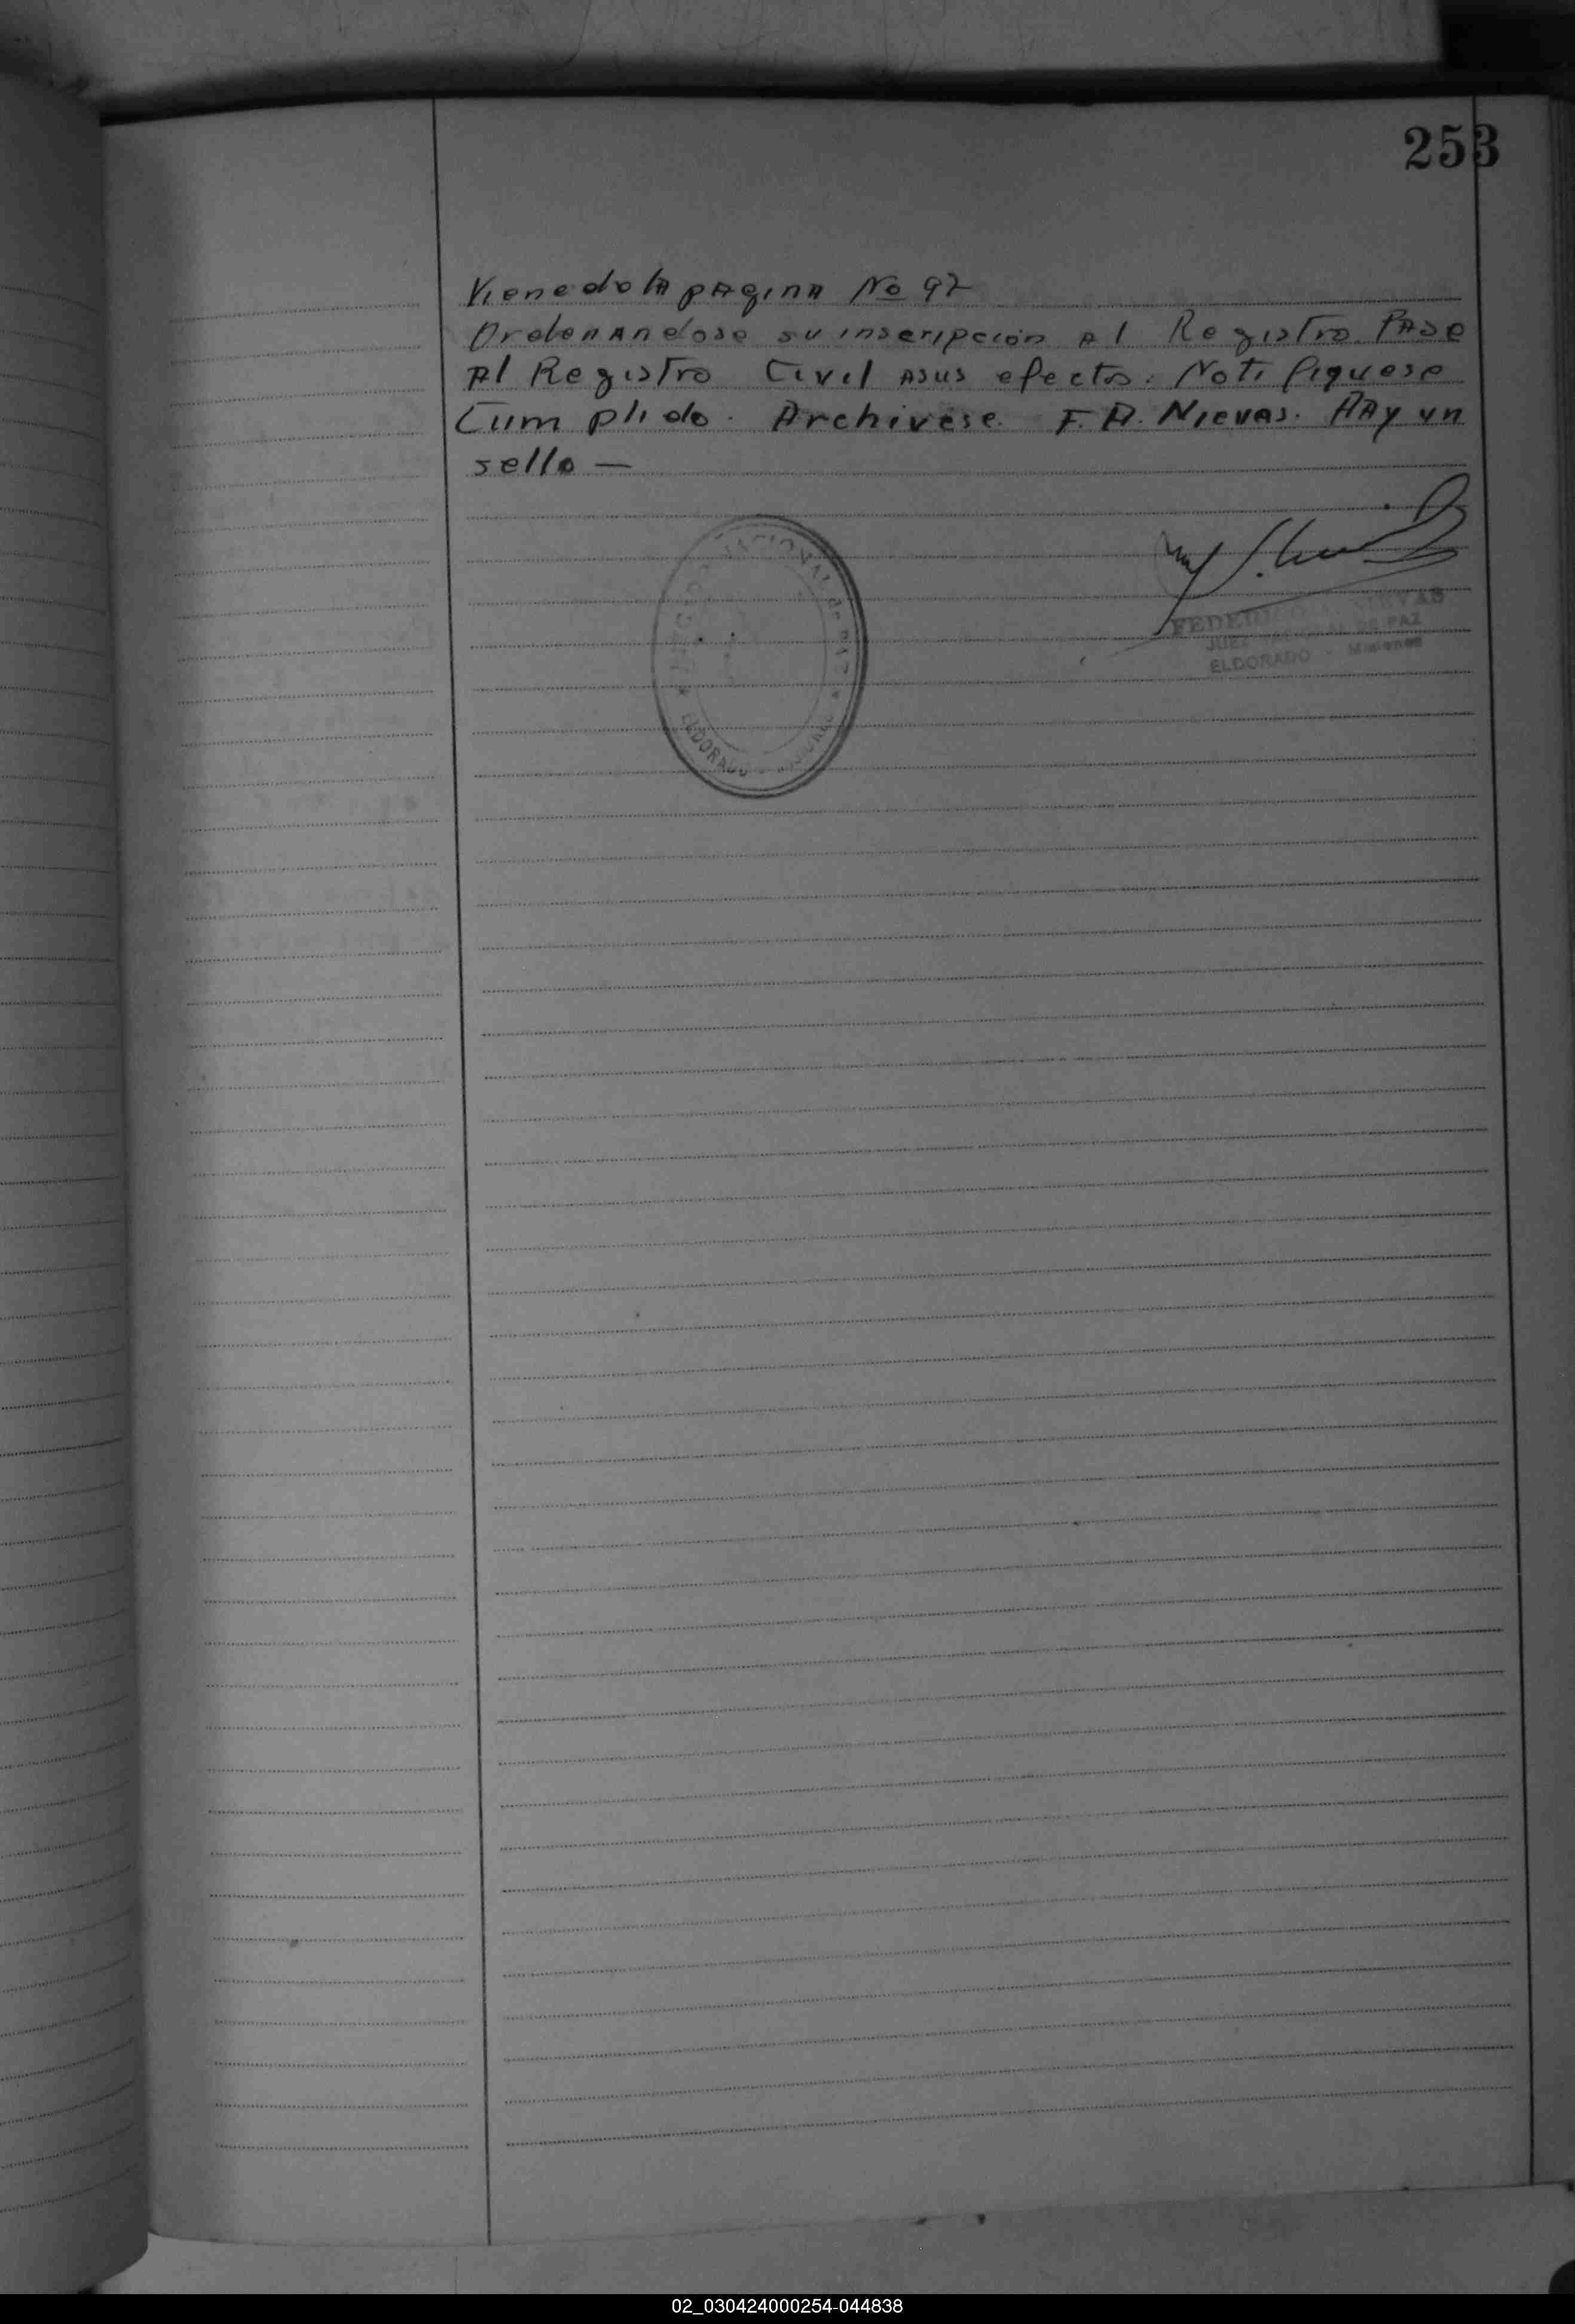 253
Viene de la pAgina No 97
OrdenAndose su inscripción Al Registro. PAse
Al Registro Civil Asus efectos. Notifiquese
Cumplido. Archivese. F. A. Nievas. HAy un
sello —
NACIONAL de PAZ
ELDORADO - MISIONES
FEDERICO NIEVAS
JUEZ NACIONAL DE PAZ
ELDORADO - Misiones
02_030424000254-044838